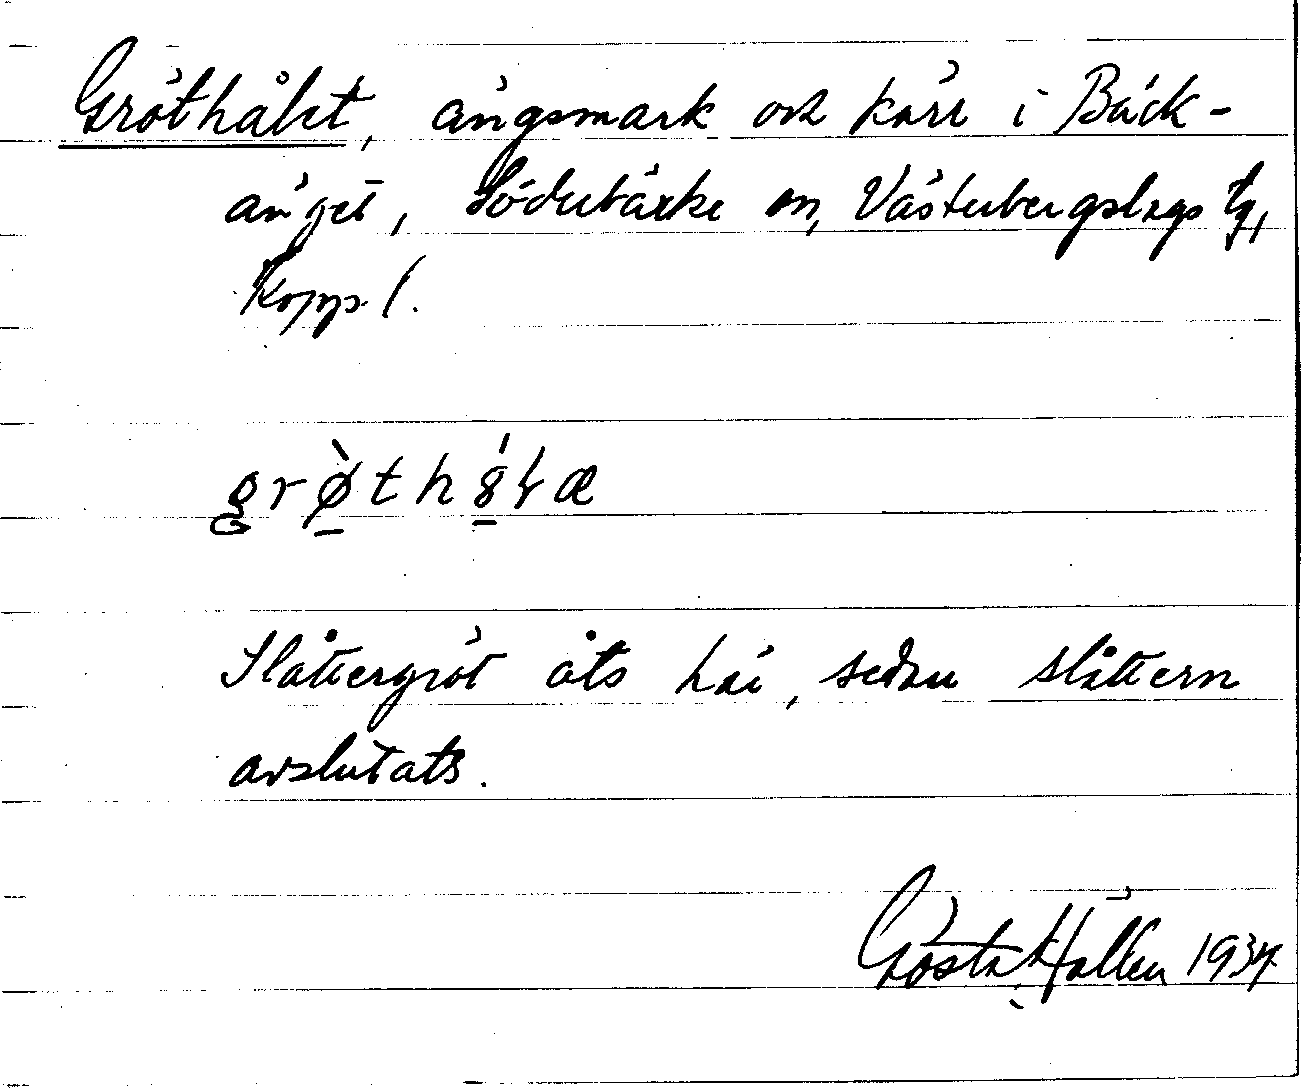 Gröthålet, ängsmark och kärr i Bäck-
änget, Söderbärke sn, Västerbergslags tg,
Kopp. l.
grøth8ɽæ
Slåttergröt åts här, sedan slåttern
avslutats.
Gösta Hallen 1934